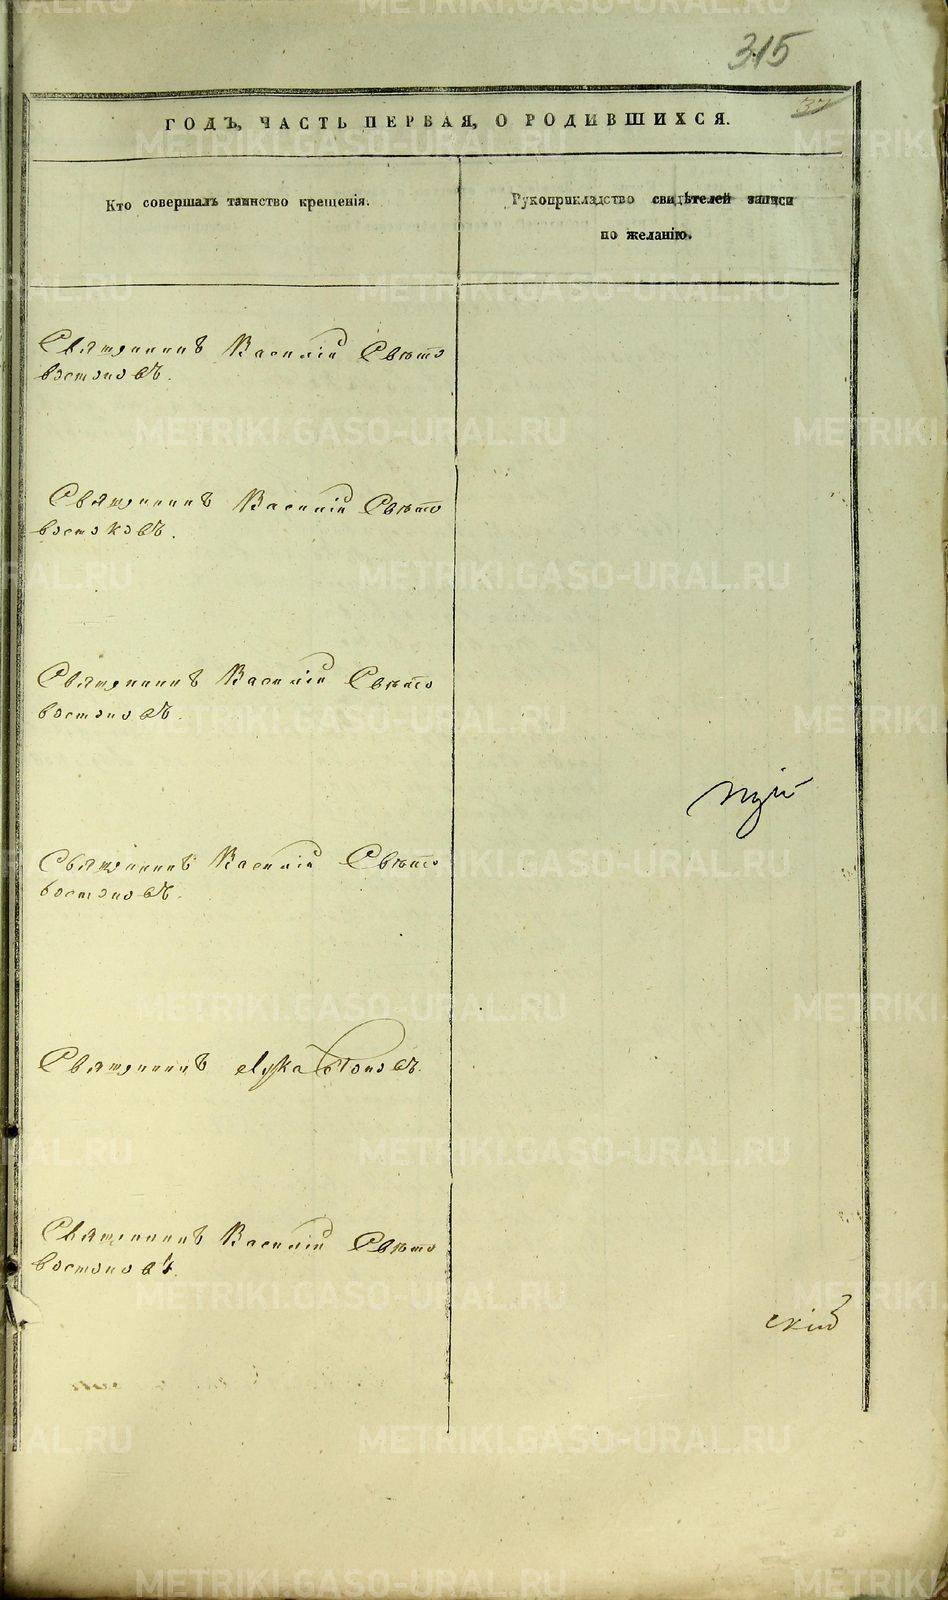 315
37
ГОДЪ, ЧАСТЬ ПЕРВАЯ, О РОДИВШИХСЯ.
Кто совершалъ таинство крещенія.
Рукоприкладство свидѣтелей записи
по желанію.
Священникъ Василій Свѣто
востоковъ.
Священникъ Василій Свѣто
востоковъ.
Священникъ Василій Свѣто
востоковъ.
Священникъ Василій Свѣто
востоковъ.
Священникъ Лука Поповъ.
Священникъ Василій Свѣто
востоковъ.
скій
METRIKI.GASO-URAL.RU